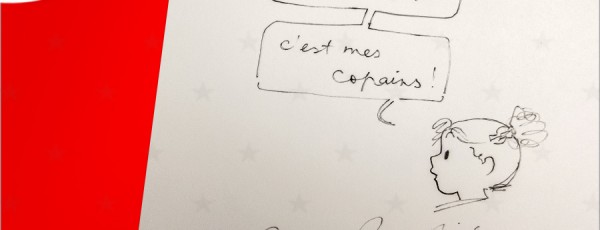 c'est mes
copains !